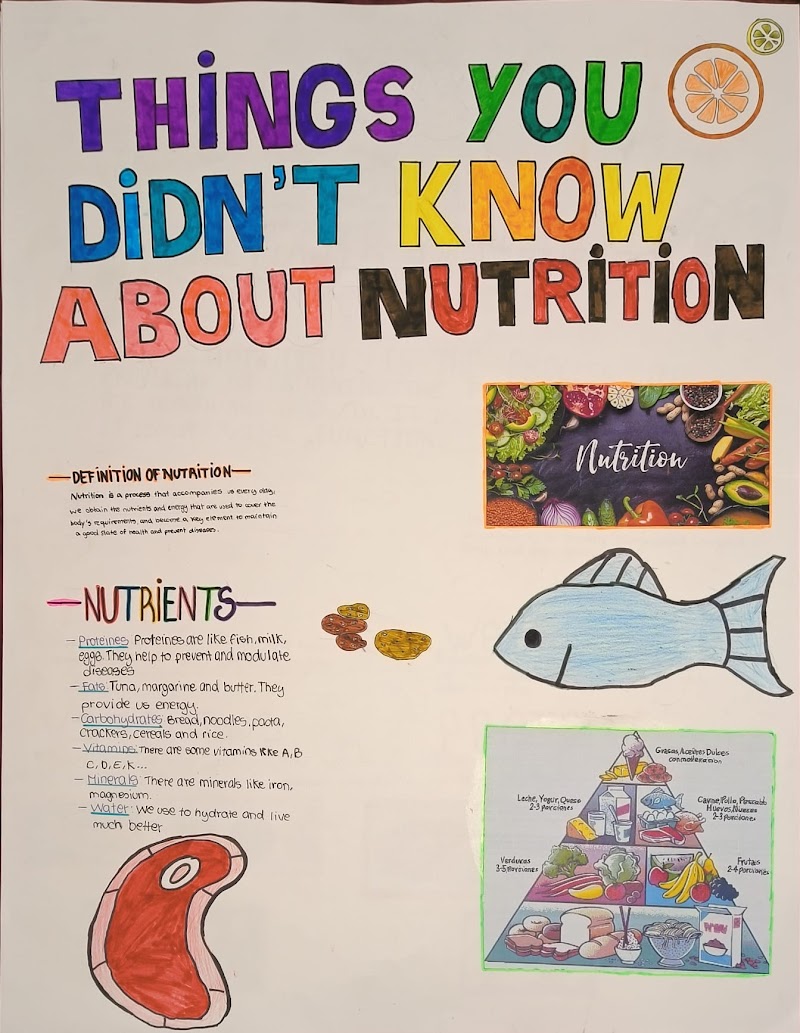 THINGS YOU
DIDN'T KNOW
ABOUT NUTRITION
Nutrition
DEFINITION OF NUTRITION
Nutrition is a process that accompanies us every day,
we obtain the nutrients and energy that are used to cover the
body's requirements, and become a key element to maintain
a good state of health and prevent diseases.
NUTRIENTS
- Proteines: Proteines are like fish, milk,
eggs. They help to prevent and modulate
diseases
- Fats: Tuna, margarine and butter. They
provide us energy.
- Carbohydrates: Bread, noodles, pasta,
crackers, cereals and rice.
- Vitamins: There are some vitamins like A, B
C, D, E, K...
- Minerals: There are minerals like iron,
magnesium.
- Water: We use to hydrate and live
much better
Grasas, Aceites Dulces
con moderacion
Leche, Yogur, Queso
2-3 porciones
Carne, Pollo, Pescado
Huevos, Nueces
2-3 porciones
Verduras
3-5 porciones
Frutas
2-4 porciones